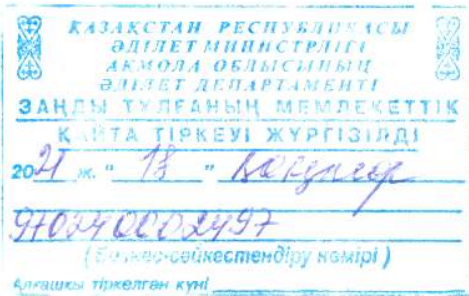 ҚАЗАҚСТАН РЕСПУБЛИКАСЫ
ӘДІЛЕТ МИНИСТРЛІГІ
АҚМОЛА ОБЛЫСЫНЫҢ
ӘДІЛЕТ ДЕПАРТАМЕНТІ
ЗАҢДЫ ТҰЛҒАНЫҢ МЕМЛЕКЕТТІК
ҚАЙТА ТІРКЕУІ ЖҮРГІЗІЛДІ
2021 ж. " 18 "
970240002497
(Бизнес-сәйкестендіру нөмірі)
Алғашқы тіркелген күні